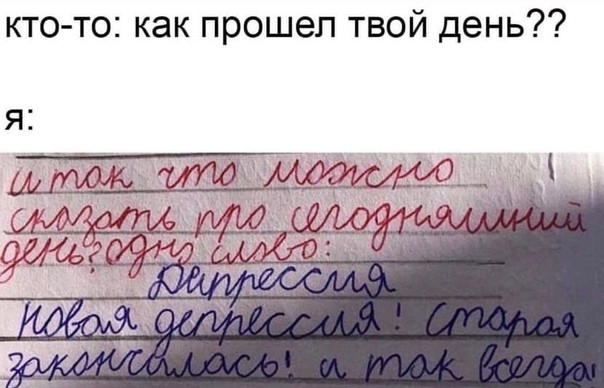 кто-то: как прошел твой день??
я:
итак что можно
сказать про сегодняшний
день? одно слово:
Депрессия
новая депрессия! старая
закончилась! и так всегда!